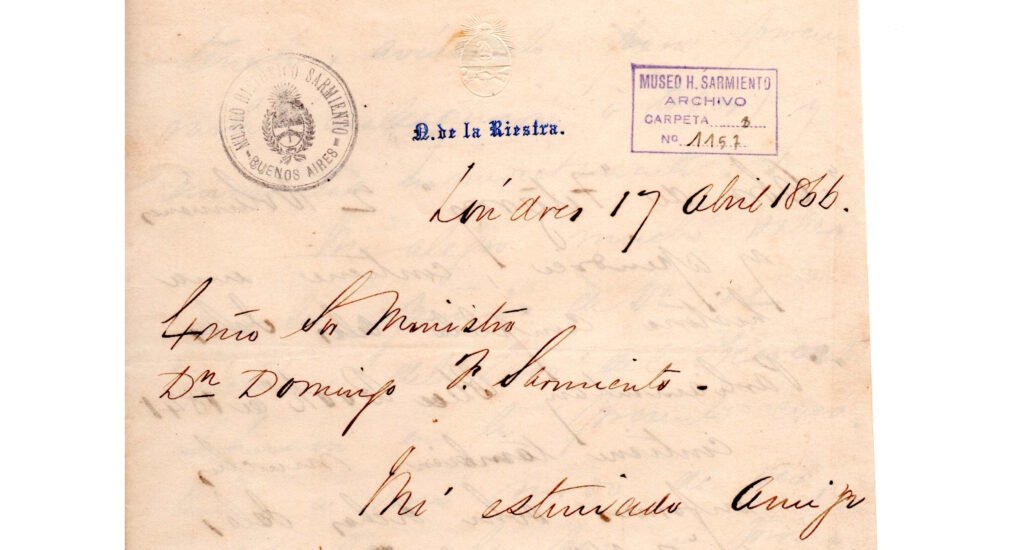 MUSEO HISTORICO SARMIENTO
BUENOS AIRES
N. de la Riestra.
MUSEO H. SARMIENTO
ARCHIVO
CARPETA 3
No. 1157
Londres 17 Abril 1866.
Sor Ministro
Dn Domingo F. Sarmiento -
Mi estimado Amigo